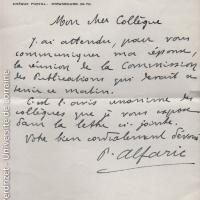 CHÈQUE POSTAL : STRASBOURG
Mon cher Collègue
J'ai attendu, pour vous
communiquer ma réponse,
la réunion de la Commission
des Publications qui devait se
tenir ce matin.
C'est l'avis unanime des
collègues que je vous expose
dans la lettre ci-jointe.
Votre bien cordialement dévoué
P. Alfaric
Université de Lorraine